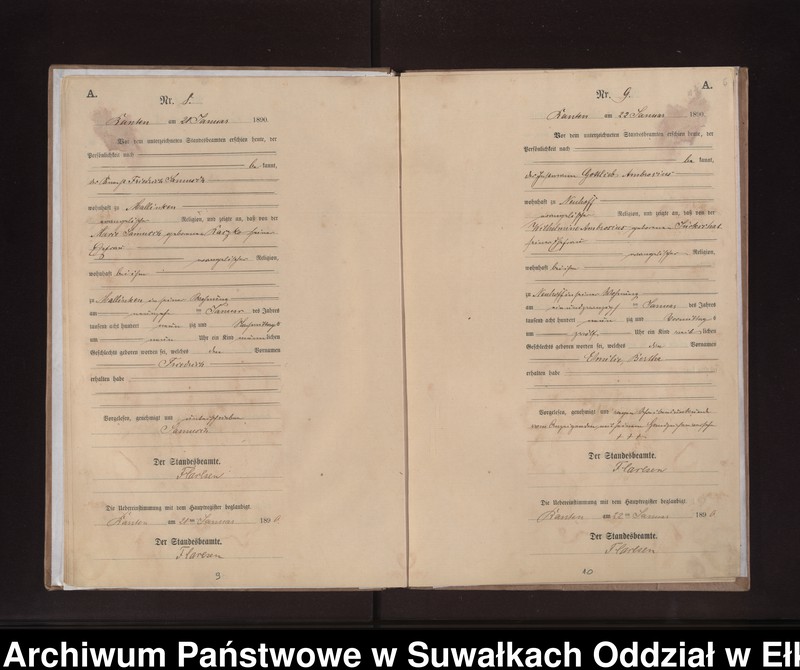 A.
Nr. 8.
Kanten am 20 Januar 1890.
Vor dem unterzeichneten Standesbeamten erschien heute, der
Persönlichkeit nach
be kannt,
Friedrich
wohnhaft zu Mallinken
evangelischer Religion, und zeigte an, daß von der
geborenen seiner
Ehefrau
evangelischer Religion,
wohnhaft bei ihm
zu Mallinken in seiner Wohnung
am im Januar des Jahres
tausend acht hundert neun zig und Nachmittags
um neun Uhr ein Kind männ lichen
Geschlechts geboren worden sei, welches den Vornamen
Friedrich
erhalten habe
Vorgelesen, genehmigt und unterschrieben
Der Standesbeamte.
Die Uebereinstimmung mit dem Hauptregister beglaubigt.
Kanten am 20ten Januar 1890
Der Standesbeamte.
5
A.
Nr. 9.
Kanten am 22 Januar 1890.
Vor dem unterzeichneten Standesbeamten erschien heute, der
Persönlichkeit nach
be kannt,
der Gottlieb Ambrosius
wohnhaft zu Neuhoff
evangelischer Religion, und zeigte an, daß von der
Wilhelmine Ambrosius geborenen
seiner Ehefrau
evangelischer Religion,
wohnhaft bei ihm
zu Neuhoff in seiner Wohnung
am im Januar des Jahres
tausend acht hundert neun zig und Vormittags
um zwölf Uhr ein Kind weib lichen
Geschlechts geboren worden sei, welches den Vornamen
Bertha
erhalten habe
Vorgelesen, genehmigt und wegen Schreibensunkunde
vom Anzeigenden mit seinem Handzeichen versehen
+ + +
Der Standesbeamte.
Die Uebereinstimmung mit dem Hauptregister beglaubigt.
Kanten am 22ten Januar 1890
Der Standesbeamte.
10
Archiwum Państwowe w Suwałkach Oddział w Eł